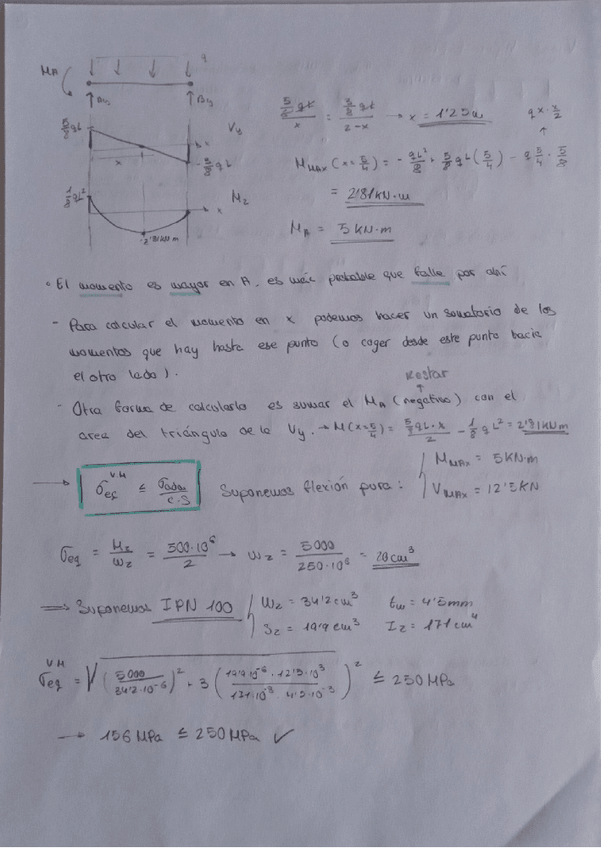 q
MA
Ay By
5/8 qL Vy
x
x
-3/8 qL
1/8 qL² Mz
x
-2'81kN m
5/8 qL / x = 3/8 qL / 2-x → x = 1'25m
q x · x/2
↑
MMAX (x = 5/4) = - qL²/8 + 5/8 qL (5/4) - q 5/4 · 5/8
= 2'81 KN·m
MA = 5 KN·m
• El momento es mayor en A, es más probable que falle por ahí
- Para calcular el momento en x podemos hacer un sumatorio de los
momentos que hay hasta ese punto (o coger desde este punto hacia
el otro lado).
Restar
↑
- Otra forma de calcularlo es sumar el MA (negativo) con el
area del triángulo de la Vy. → M(x=5/4) = 5/8 qL·x / 2 - 1/8 q L² = 2'81KNm
→ σeq VM ≤ σadm / C.S Suponemos flexión pura: MMAX = 5KN·m
VMAX = 12'5KN
σeq = Mz / Wz = 500·10⁶ / 2 → Wz = 5000 / 250·10⁶ = 20cm³
⇒ Suponemos IPN 100 Wz = 34'2cm³ tw = 4'5mm
Sz = 19'9cm³ Iz = 171cm⁴
σeq VM = √( (5000 / 34'2·10⁻⁶)² + 3 (19'9·10⁻⁶ · 12'5·10³ / 171·10⁻⁸ · 4'5·10⁻³)² ≤ 250 MPa
→ 156 MPa ≤ 250 MPa ✓